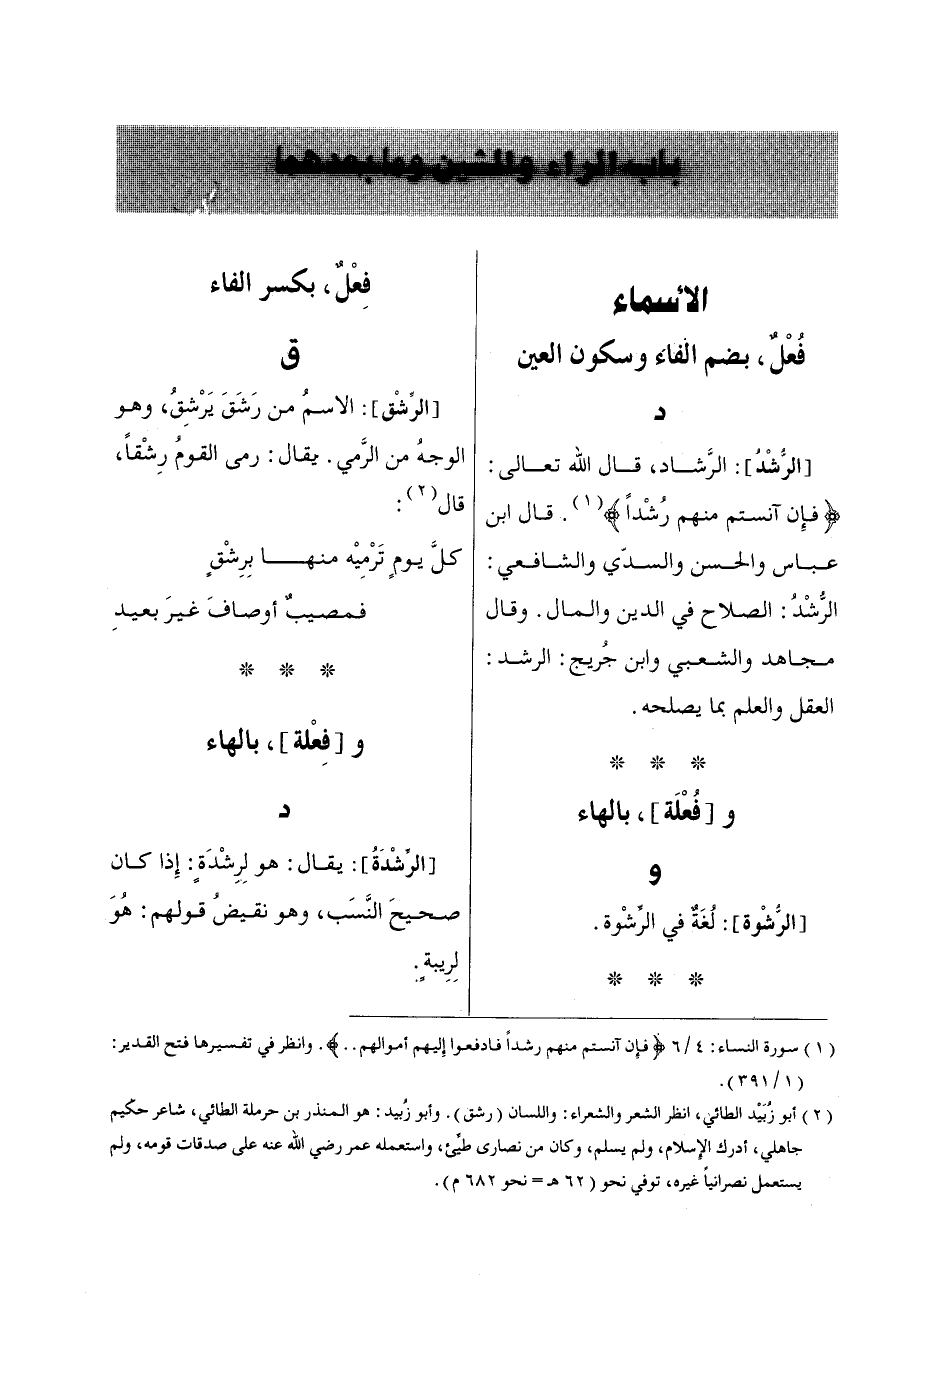 باب الراء والشين وما بعدهما
الأسماء
فُعْلٌ، بضم الفاء وسكون العين
د
[الرُّشْدُ]: الرَّشاد، قال الله تعالى:
﴿فإن آنستم منهم رُشْداً﴾(١). قال ابن
عباس والحسن والسدّي والشافعي:
الرُّشْدُ: الصلاح في الدين والمال. وقال
مجاهد والشعبي وابن جُريج: الرشد:
العقل والعلم بما يصلحه.
* * *
و [فُعْلَة]، بالهاء
و
[الرُّشْوة]: لُغَةٌ في الرِّشْوة.
* * *
فِعْلٌ، بكسر الفاء
ق
[الرِّشْق]: الاسمُ من رَشَقَ يَرْشقُ، وهو
الوجهُ من الرَّمي. يقال: رمى القومُ رِشْقاً،
قال(٢):
كلَّ يومٍ تَرْمِيْه منهـا بِرِشْقٍ
فمصيبٌ أوصافَ غيرَ بعيدِ
* * *
و [فِعْلة]، بالهاء
د
[الرِّشْدَةُ]: يقال: هو لِرِشْدَةٍ: إِذا كان
صحيحَ النَّسَب، وهو نقيضُ قولهم: هُوَ
لِرِيبةٍ.
(١) سورة النساء: ٤/ ٦ ﴿فإن آنستم منهم رشداً فادفعوا إليهم أموالهم..﴾. وانظر في تفسيرها فتح القدير:
(١/ ٣٩١).
(٢) أبو زُبَيْد الطائي، انظر الشعر والشعراء: واللسان (رشق). وأبو زُبيد: هو المنذر بن حرملة الطائي، شاعر حكيم
جاهلي، أدرك الإسلام، ولم يسلم، وكان من نصارى طيِّئ، واستعمله عمر رضي الله عنه على صدقات قومه، ولم
يستعمل نصرانياً غيره، توفي نحو (٦٢ هـ = نحو ٦٨٢ م).